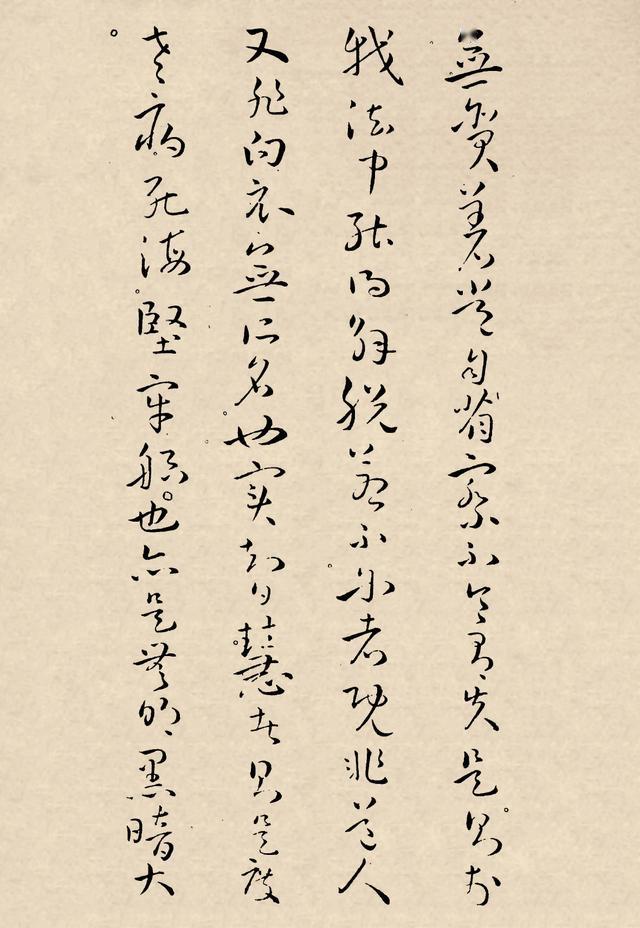 無貪著常自省察不令有失是則於
我法中能得解脫若不尔者既非道人
又非白衣無所名也實智慧者則是度
老病死海堅牢船也亦是無明黑暗大